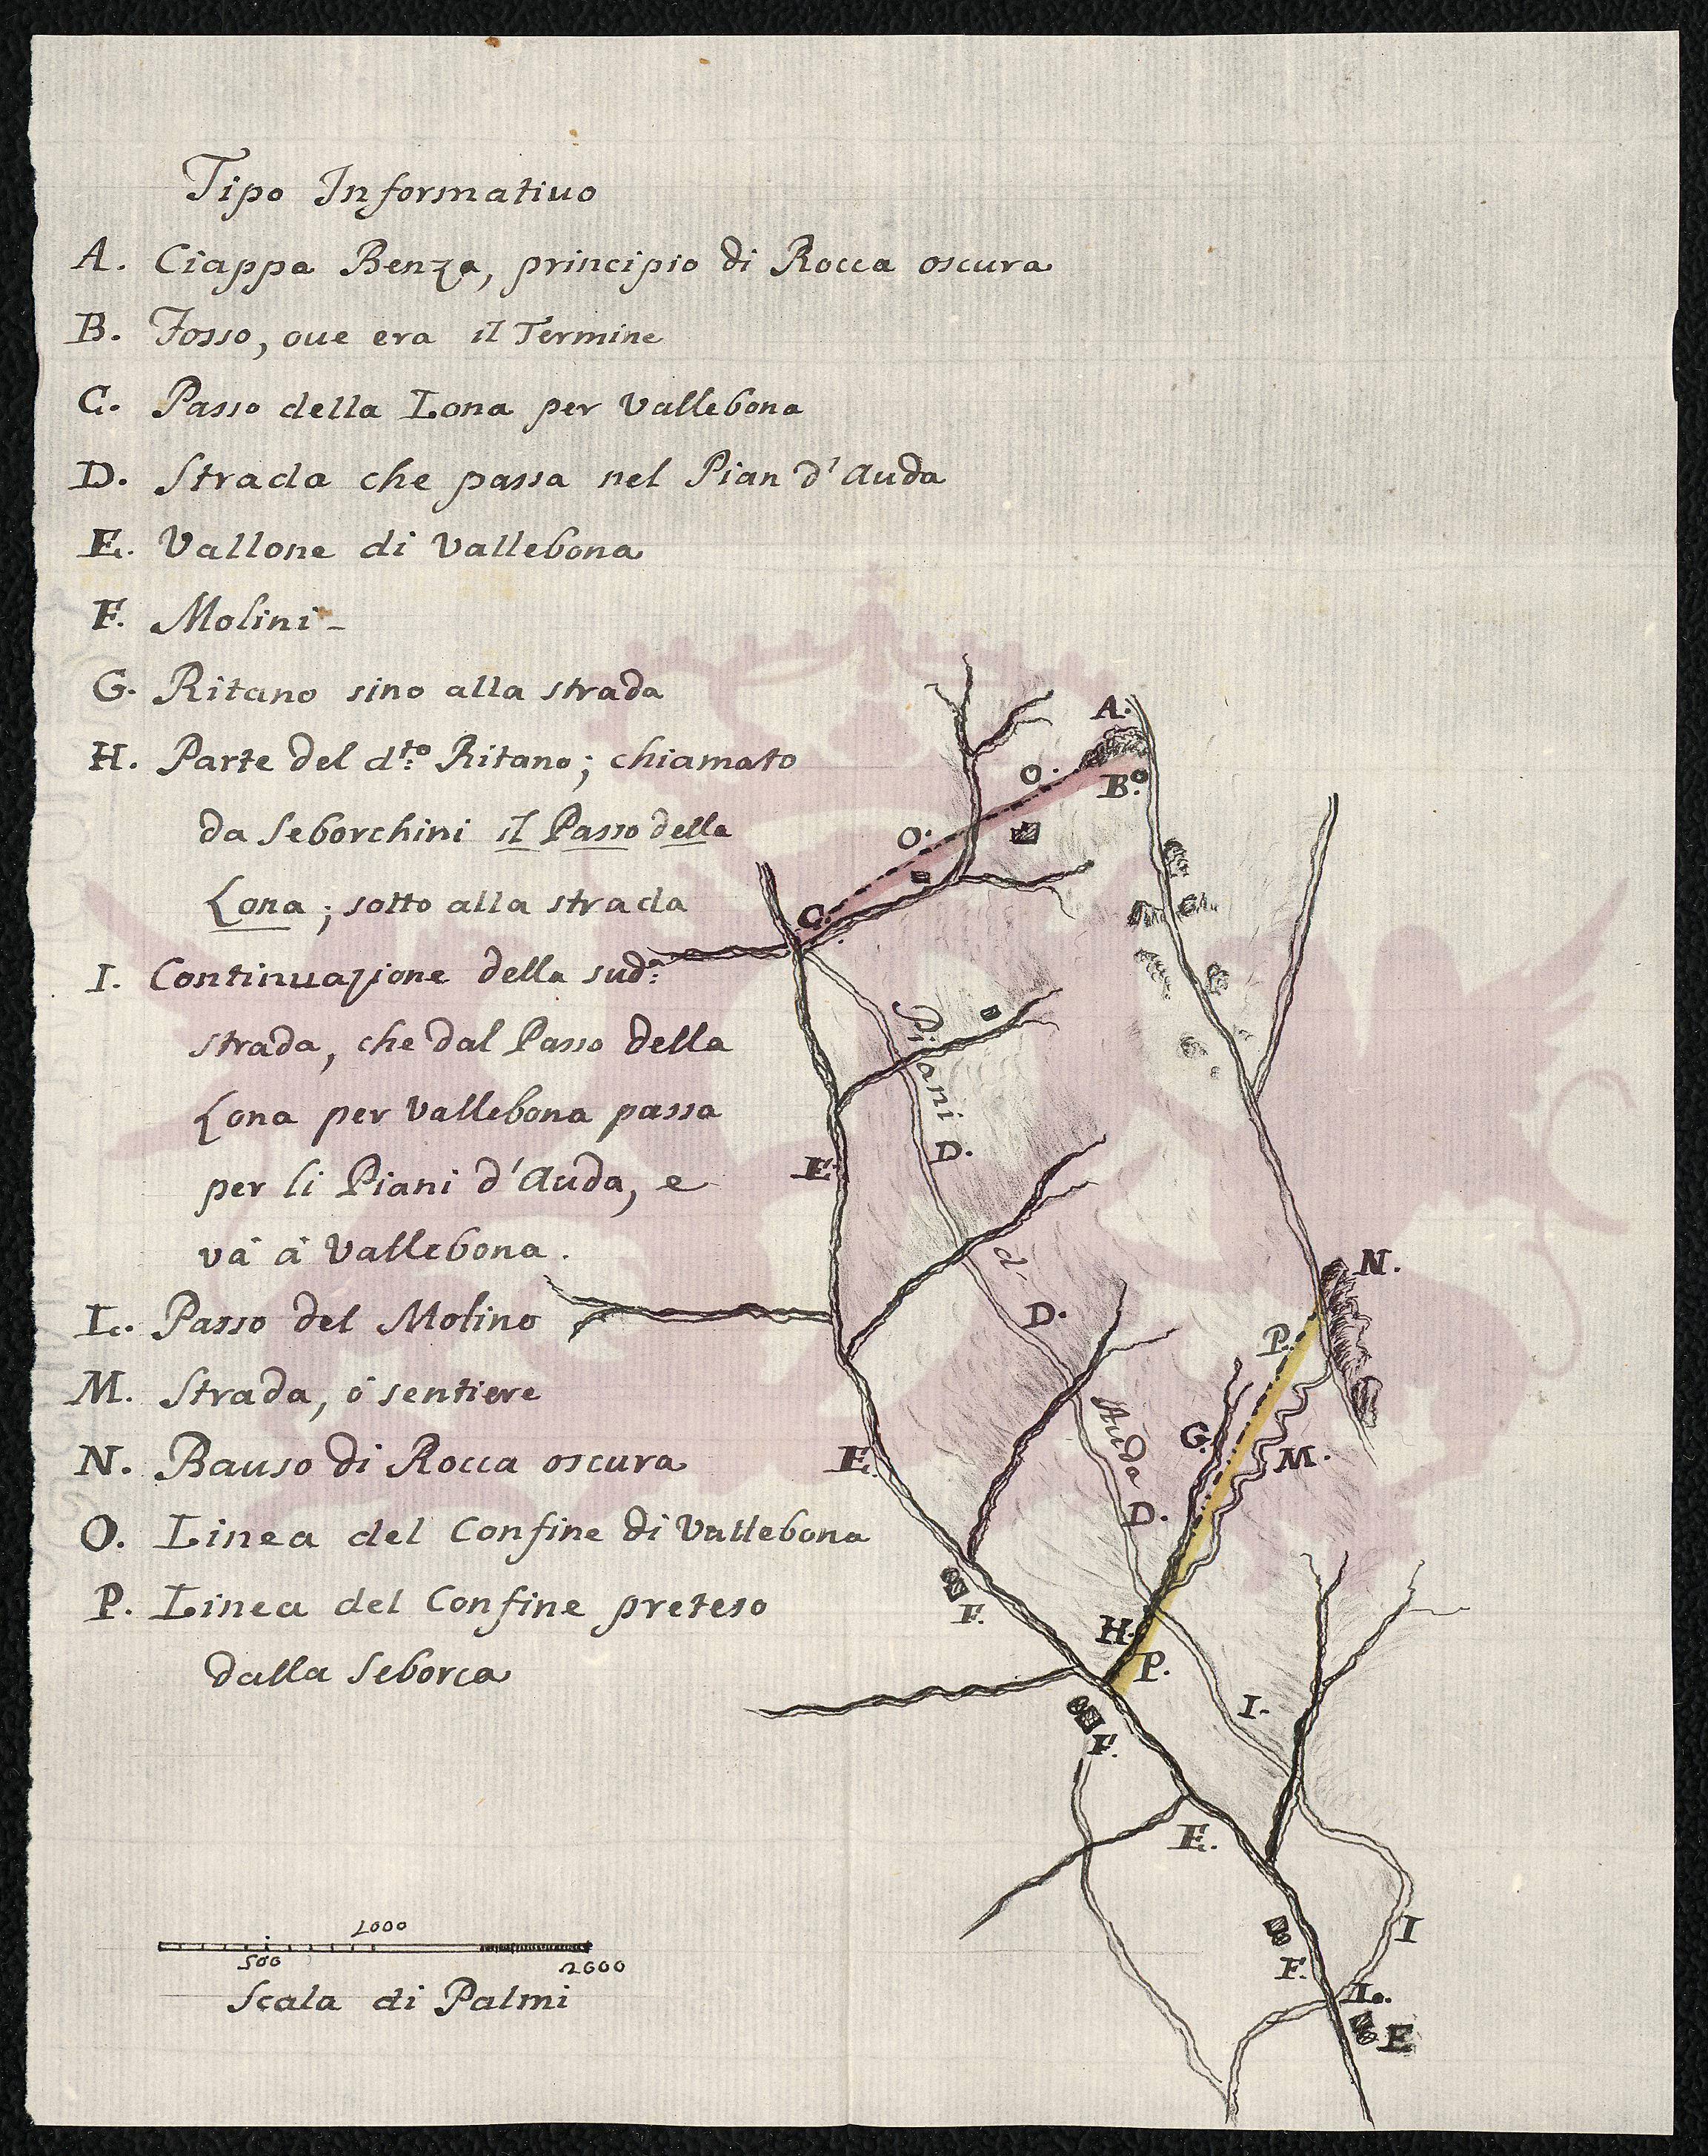 Tipo Informatiuo
A. Ciappa Benza, principio di Rocca oscura
B. Fosso, oue era il Termine
C. Passo della Lona per Vallebona
D. Strada che passa nel Pian d'Auda
E. Vallone di Vallebona
F. Molini -
G. Ritano sino alla strada
H. Parte del d.to Ritano; chiamato
da Seborchini il Passo della
Lona; sotto alla strada
I. Continuazione della sud.a
strada, che dal Passo della
Lona per Vallebona passa
per li Piani d'Auda, e
và à Vallebona.
L. Passo del Molino
M. Strada, ò sentiere
N. Bauso di Rocca oscura
O. Linea del Confine di Vallebona
P. Linea del Confine preteso
dalla Seborca
A.
B.
O.
O.
C.
Piani
D.
E.
d'
D.
N.
P.
Auda
G.
M.
E.
D.
F.
H.
P.
I.
F.
E.
I
F.
L.
F
1000
500
2000
Scala di Palmi